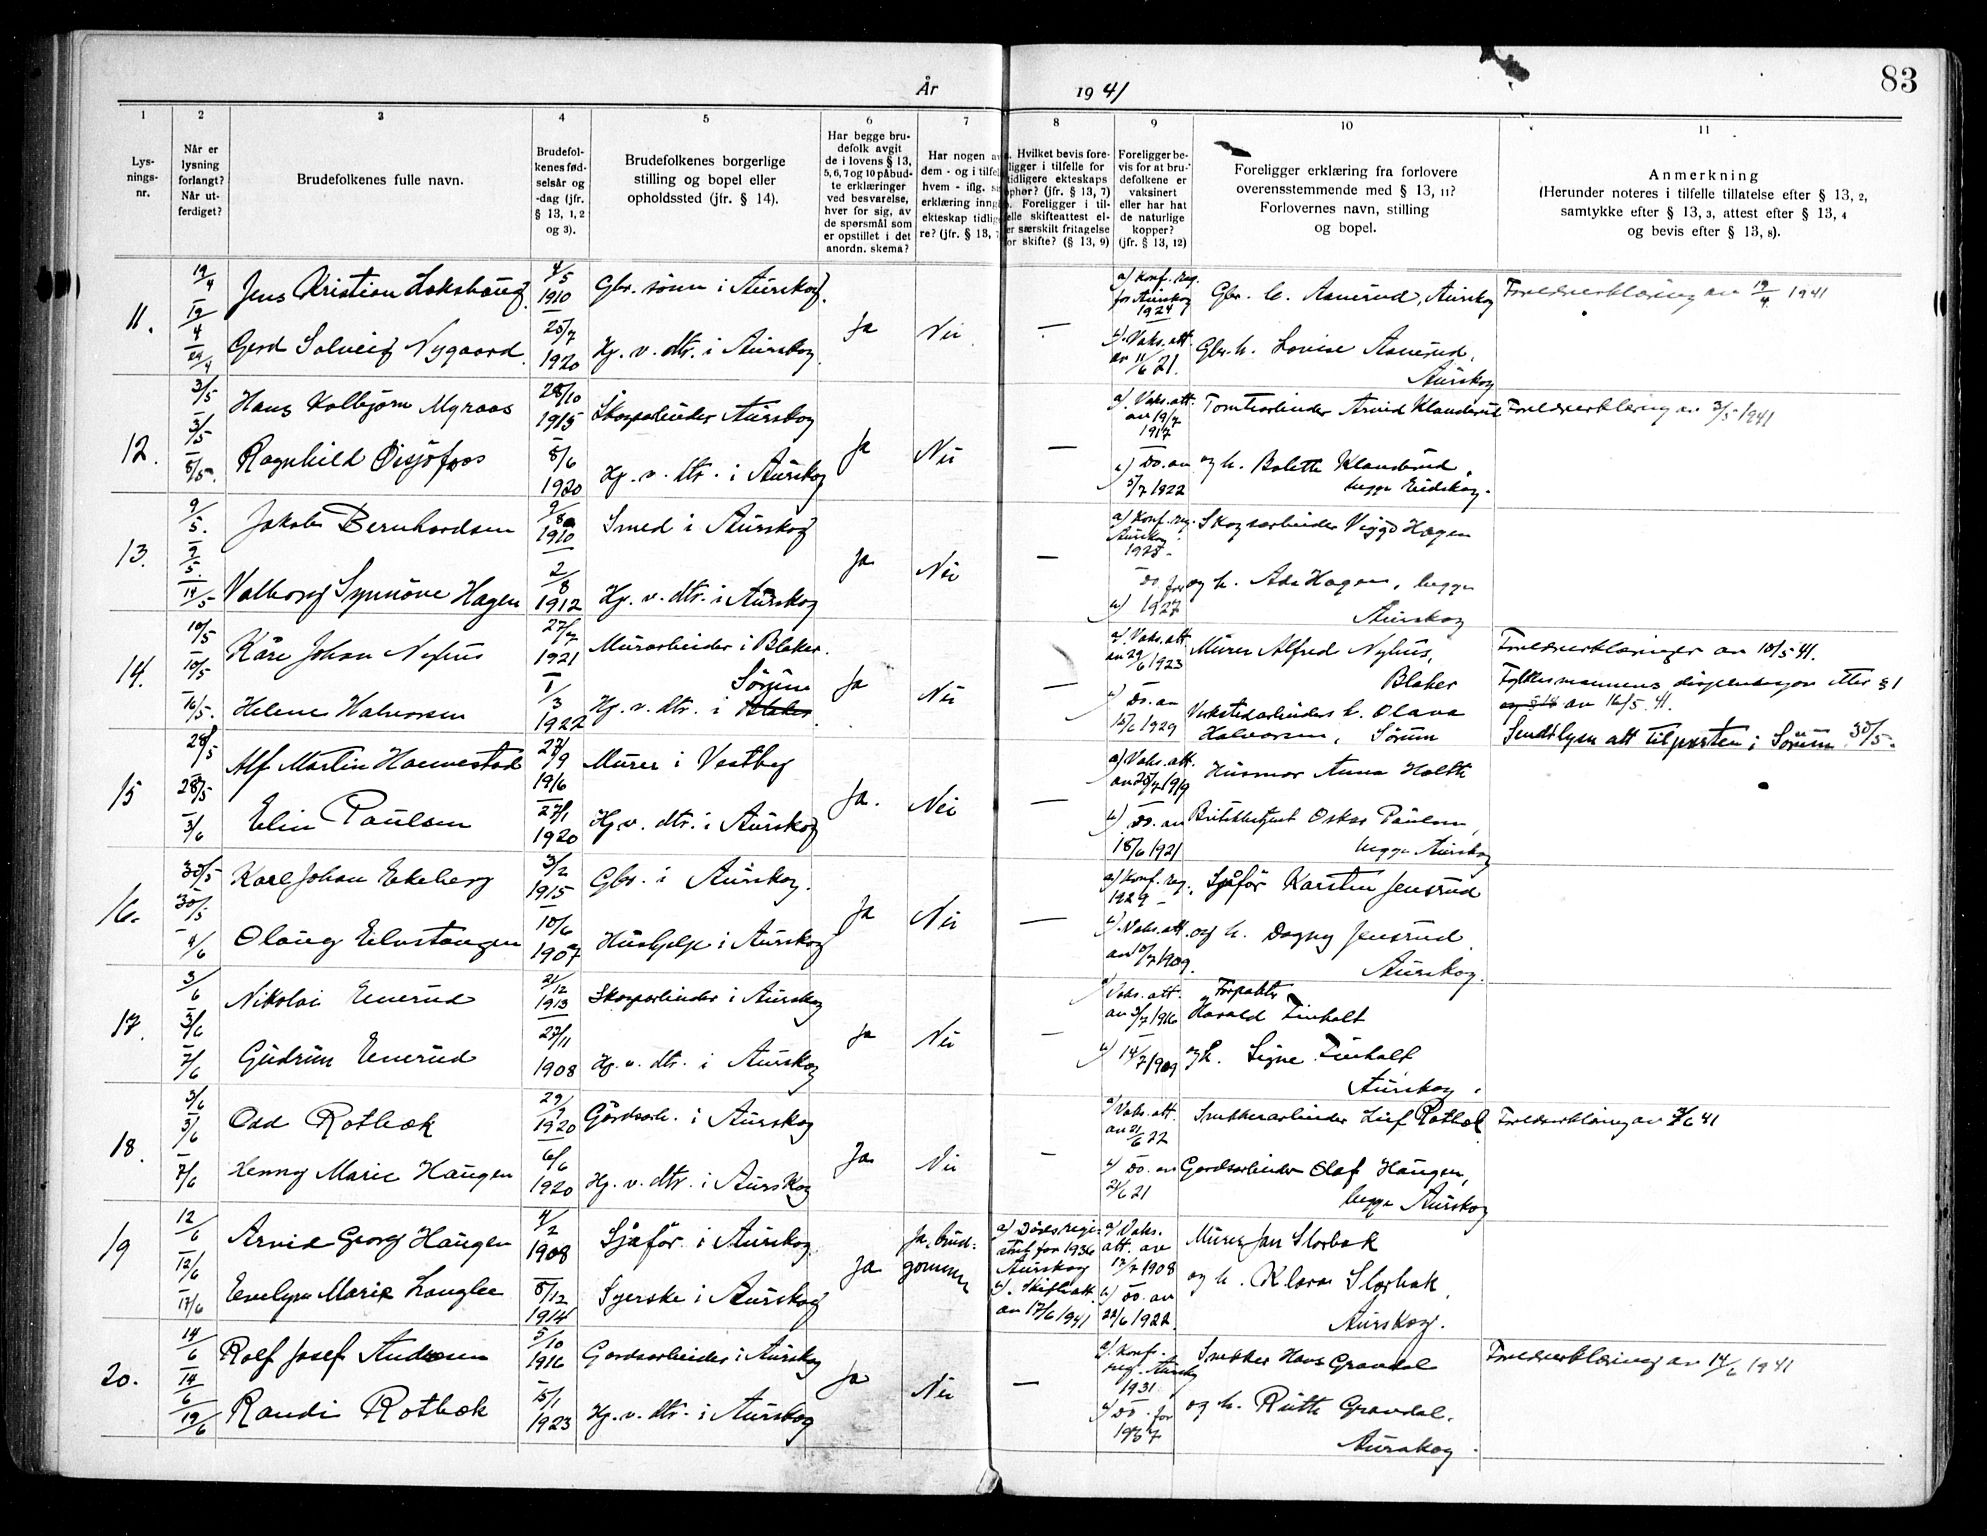 83
År 1941
1
2
3
4
5
6
7
8
9
10
11
Lys-
nings-
nr.
Når er
lysning
forlangt?
Når ut-
ferdiget?
Brudefolkenes fulle navn.
Brudefol-
kenes fød-
selsår og
-dag (jfr.
§ 13, 1, 2
og 3).
Brudefolkenes borgerlige
stilling og bopel eller
opholdssted (jfr. § 14).
Har begge bru-
defolk avgit
de i lovens § 13,
5, 6, 7 og 10 påbud-
te erklæringer
ved besvarelse,
hver for sig, av
de spørsmål som
er opstillet i det
anordn. skema?
Har nogen av
dem - og i tilfelle
hvem - iflg. sin
erklæring inngått
ekteskap tidlige-
re? (jfr. § 13, 7)
Hvilket bevis fore-
ligger i tilfelle for
tidligere ekteskaps
ophør? (jfr. § 13, 7)
Foreligger i til-
felle skifteattest el-
ler særskilt fritagelse
for skifte? (§ 13, 9)
Foreligger be-
vis for at bru-
defolkene er
vaksinert
eller har hat
de naturlige
kopper?
(jfr. § 13, 12)
Foreligger erklæring fra forlovere
overensstemmende med § 13, 11?
Forlovernes navn, stilling
og bopel.
Anmerkning
(Herunder noteres i tilfelle tillatelse efter § 13, 2,
samtykke efter § 13, 3, attest efter § 13, 4
og bevis efter § 13, 8).
11.
19/4
19/4
24/4
Jens Kristian Lokshaug
4/5
1910
Gbr. sønn i Aurskog.
Ja
Nei
—
a) Konf. reg.
for Aurskog
1924
Gbr. h. Aanerud, Aurskog
Foreldreerklæring av 19/4 1941
Gerd Solveig Nygaard.
25/7
1920
Hj. v. dtr. i Aurskog
b) Vaks. att.
av 11/6 21.
Gbr. h. Lovise Aanerud,
Aurskog
12.
3/5
3/5
8/5.
Hans Kolbjørn Myraas
28/10
1915
Skogarbeider Aurskog
Ja
Nei
—
a) Vaks. att.
av 19/7
1917
Tomtearbeider Arvid Klanderud
Foreldreerklæring av 3/5 1941
Ragnhild Disjøfoss
8/6
1920
Hj. v. dtr. i Aurskog
b) Do. av
5/7 1922
og h. Bolette Klanderud,
begge Eidskog.
13.
9/5.
9/5.
14/5
Jakob Bernhardsen
9/8
1910
Smed i Aurskog
Ja
Nei
—
a) Konf. reg.
Aurskog
1925.
Skogsarbeider Viggo Hagen
Valborg Synnøve Hagen
2/8
1912
Hj. v. dtr. i Aurskog
Do for
b) 1927
og h. Ada Hagen, begge
Aurskog
14.
10/5
10/5
16/5.
Kåre Johan Nyhus
27/7
1921
Murarbeider i Blaker.
Ja
Nei
—
a) Vaks. att.
av 29/6 1923
Murer Alfred Nyhus,
Blaker
Foreldreerklæringer av 10/5 41.
Fylkesmannens dispensasjon etter § 1
av 16/5 41.
Helene Halvorsen
1/3
1922
Hj. v. dtr. i Blaker Sørum
b) Do. av
15/6 1929
Verkstedarbeiders h. Olava
Halvorsen, Sørum
Sendt lysn. att til presten i Sørum 30/5.
15
28/5
28/5
3/6
Alf Martin Hannestad
27/9
1916
Murer i Vestby
Ja.
Nei
—
a) Vaks. att.
av 28/7 1919
Husmor Anna Holth
Elin Paulsen
27/1
1920
Hj. v. dtr. i Aurskog
b) Do. av
18/6 1921
Oskar Paulsen,
begge Aurskog
16.
30/5
30/5
4/6
Karl Johan Ekeberg
3/2
1915
Gbr. i Aurskog.
Ja
Nei
—
a) Konf. reg.
1929 –
Sjåfør Karsten Jensrud
Olaug Elvstangen
10/6
1907
Hushjelp i Aurskog
b) Vaks. att.
av 5/7 1909.
og h. Dagny Jensrud
Aurskog.
17.
3/6
3/6
7/6
Nikolai Enerud
21/12
1913
Skogarbeider i Aurskog
Ja
Nei
—
a) Vaks. att.
av 3/7 1916
Forpakter
Harald Finholt
Gudrun Enerud
27/11
1908
Hj. v. dtr. i Aurskog
b) 14/7 1909
og h. Signe Finholt
Aurskog.
18.
3/6
3/6
7/6
Odd Rotbæk
29/9
1920
Gårdsarb. i Aurskog
Ja
Nei
—
a) Vaks. att.
av 21/6 22
Snekkerarbeider Leif Rotbæk
Foreldreerklæring av 3/6 41
Jenny Marie Haugen
6/6
1920
Hj. v. dtr. i Aurskog
b) Do. av
21/6 21
Gardsarbeider Olaf Haugen,
begge Aurskog
19
12/6
12/6
17/6
Arvid Georg Haugen
4/2
1908
Sjåfør i Aurskog.
Ja
Ja, brud-
gommen
a) Dødsregi-
stret for 1936
Aurskog
b) Skifteatt.
av 17/6 1941
a) Vaks.
att. av
17/7 1908
Murer Jan Storbæk
Evelyn Marie Langlie
8/12
1914
Syerske i Aurskog
b) Do. av
22/6 1922.
og h. Klara Storbæk,
Aurskog.
20.
14/6
14/6
19/6
Rolf Josef Andresen
5/10
1916
Gardsarbeider i Aurskog
Ja
Nei
—
a) Konf.
reg. Aurskog
1931
Snekker Hans Gravdal
Foreldreerklæring av 14/6 1941
Randi Rotbæk
15/1
1923
Hj. v. dtr. i Aurskog
b) Do. for
1937
og h. Ruth Gravdal.
Aurskog.